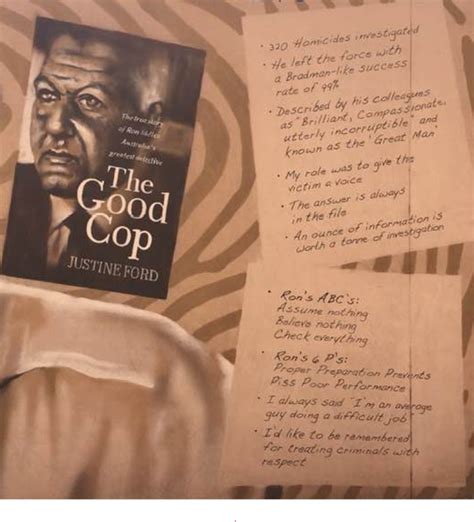 The true story
of Ron Iddles
Australia's
greatest detective
The
Good
Cop
JUSTINE FORD
• 320 Homicides investigated
• He left the force with
a Bradman-like success
rate of 99%
• Described by his colleagues
as "Brilliant, Compassionate,
utterly incorruptible" and
known as the 'Great Man'
• My role was to give the
victim a voice
• The answer is always
in the file
• An ounce of information is
worth a tonne of investigation
• Ron's ABC's:
Assume nothing
Believe nothing
Check everything
• Ron's 6 P's:
Proper Preparation Prevents
Piss Poor Performance
• I always said "I'm an average
guy doing a difficult job"
• I'd like to be remembered
for treating criminals with
respect